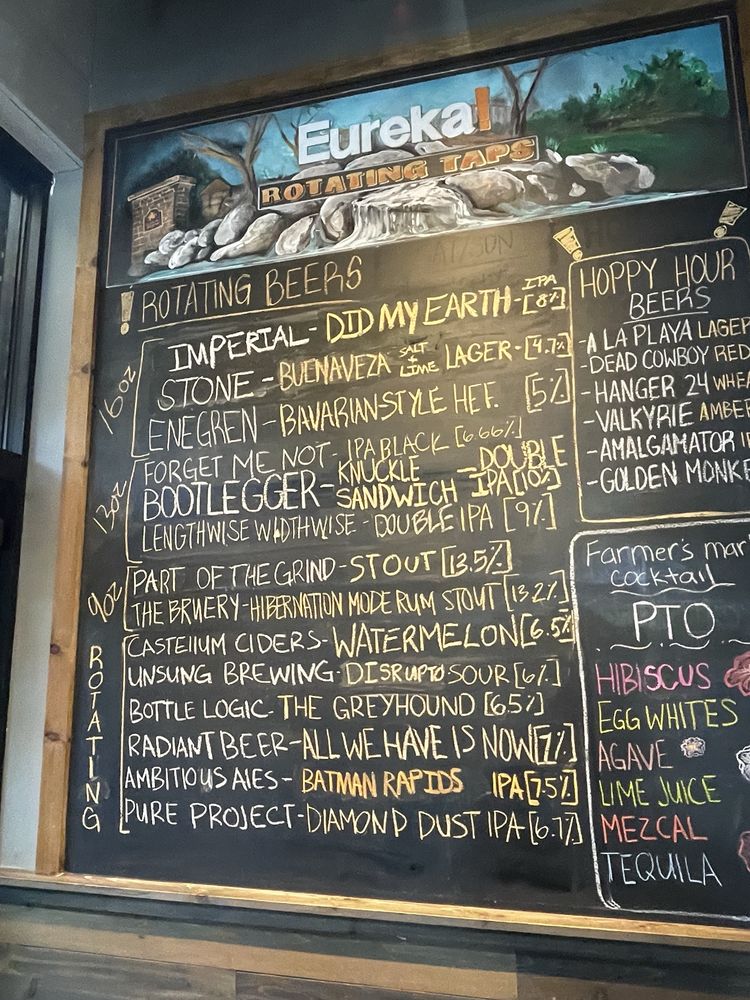 Eureka!
ROTATING TAPS
ROTATING BEERS
16oz
IMPERIAL - DID MY EARTH - IPA [8%]
STONE - BUENAVEZA SALT + LIME LAGER - [4.7%]
ENEGREN - BAVARIAN STYLE HEF. [5%]
13oz
FORGET ME NOT - IPA BLACK [6.66%]
BOOTLEGGER - KNUCKLE SANDWICH - DOUBLE IPA [10%]
LENGTHWISE WIDTHWISE - DOUBLE IPA [9%]
9oz
PART OF THE GRIND - STOUT [13.5%]
THE BRUERY - HIBERNATION MODE RUM STOUT [13.2%]
ROTATING
CASTELLUM CIDERS - WATERMELON [6.5%]
UNSUNG BREWING - DISRUPTO SOUR [6%]
BOTTLE LOGIC - THE GREYHOUND [6.5%]
RADIANT BEER - ALL WE HAVE IS NOW [7%]
AMBITIOUS ALES - BATMAN RAPIDS IPA [7.5%]
PURE PROJECT - DIAMOND DUST IPA [6.7%]
HOPPY HOUR
BEERS
-A LA PLAYA LAGER
-DEAD COWBOY RED
-HANGER 24 WHEA
-VALKYRIE AMBER
-AMALGAMATOR I
-GOLDEN MONKE
Farmer's mar
cocktail
PTO
HIBISCUS
EGG WHITES
AGAVE
LIME JUICE
MEZCAL
TEQUILA